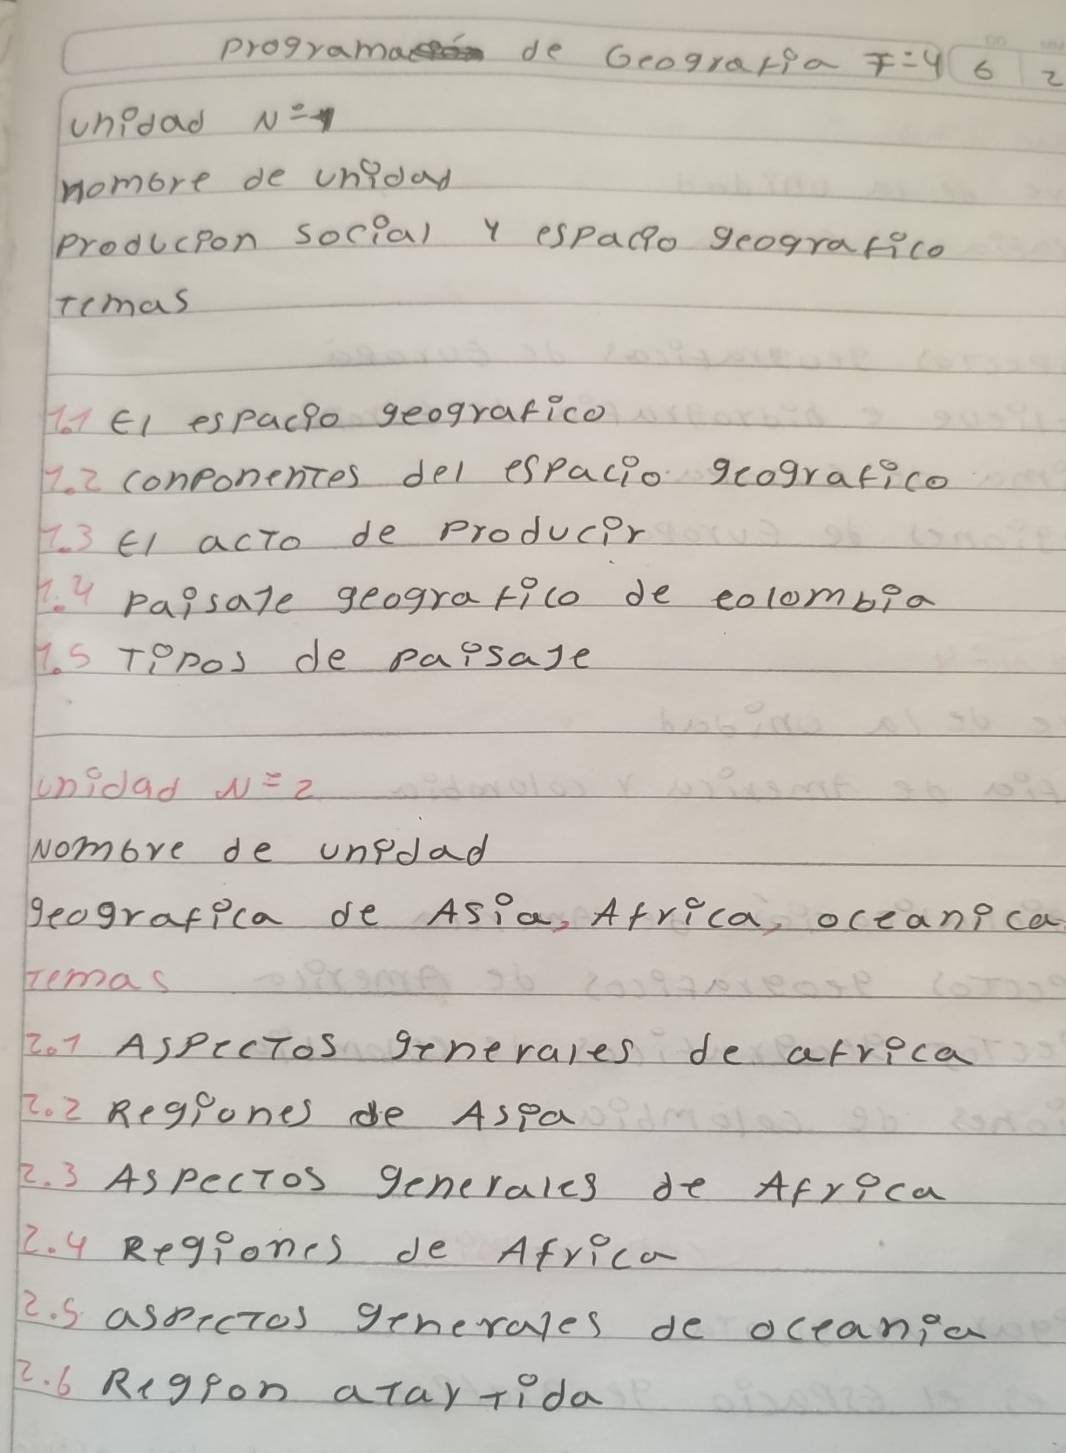 Programa de Geografia F=4 6 2
unidad N=1
nombre de unidad
Producion social y espacio geografico
Temas
1.1 El espacio geografico
1.2 Conponentes del espacio geografico
1.3 El acto de producir
1.4 Paisaje geografico de colombia
1.5 Tipos de paisaje
unidad N=2
Nombre de unidad
geografica de Asia, Africa, oceanica
Temas
2.1 Aspectos generales de africa
2.2 Regiones de Asia
2.3 Aspectos generales de Africa
2.4 Regiones de Africa
2.5 aspectos generales de oceania
2.6 Region